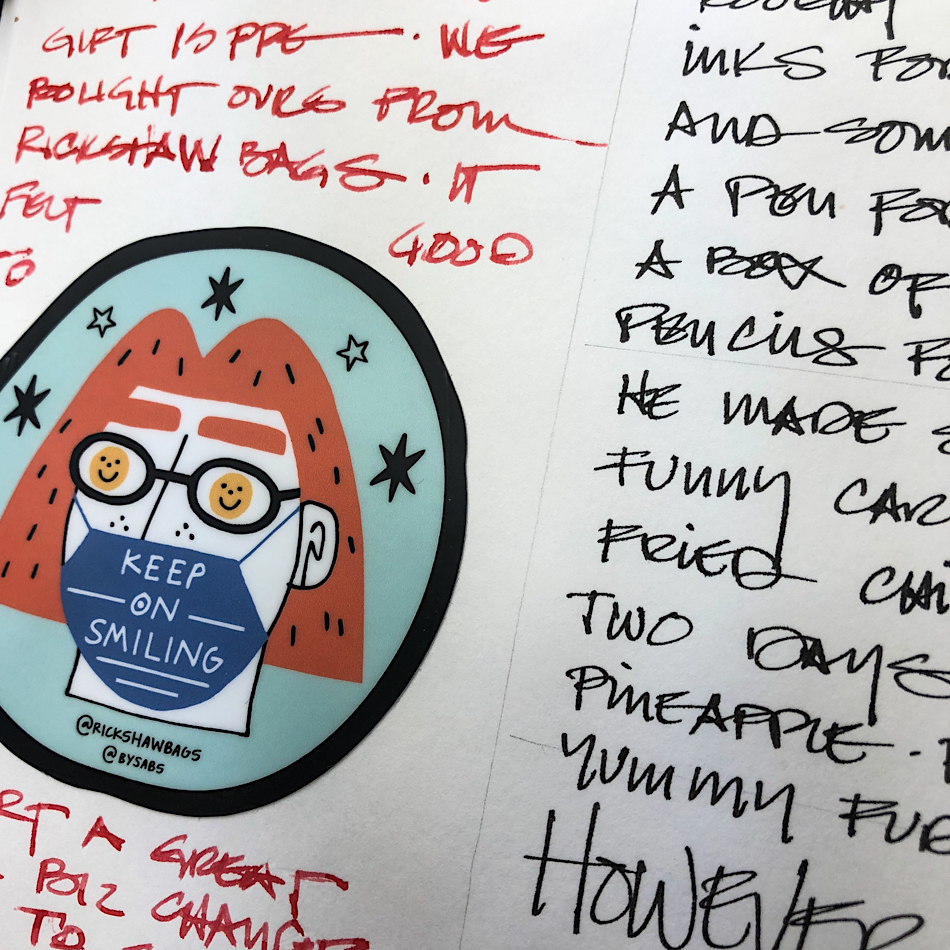 GIFT IS PPE. WE
BOUGHT OURS FROM
RICKSHAW BAGS. IT
FELT GOOD
TO
KEEP
ON
SMILING
@RICKSHAWBAGS
@BYSABS
A GREAT
BIZ CHANGE
TO
INKS FOR
AND SOM
A PEN FOR
A BOX OF
PENCILS F
HE MADE
FUNNY CAR
FRIED CHI
TWO DAYS
PINEAPPLE.
YUMMY FUR
HOWEVER